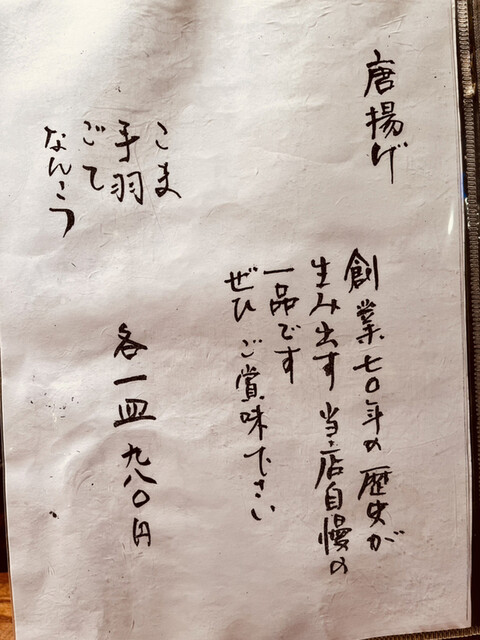 唐揚げ
創業七〇年の歴史が
生み出す当店自慢の
一品です
ぜひご賞味下さい
こま
手羽
ごて
なんこつ
各一皿九八〇円